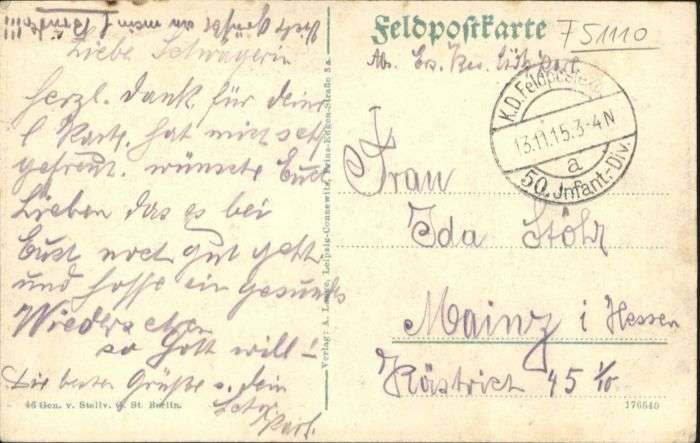 Viele Grüße an meinen
Liebe Schwägerin
herzl. Dank für deine
l Karte. hat mich sehr
gefreut. wünsche Euch
Lieben das es bei
Euch noch gut geht
und hoffe ein gesundes
Wiedersehen
so Gott will!
Die besten Grüße s. dein
Karl.
46 Gen. v. Stellv. G. St. Berlin.
Verlag: A. Lange, Leipzig-Connewitz, Prinz-Eugen-Straße 3a.
Feldpostkarte
75 1110
Abs. Ers. Res.
K.D. Feldpostexp.
13.11.15.3-4N
a
50. Jnfant.-Div.
Frau
Ida Stöhr
Mainz i Hessen
Kästrich 45 1/10
176540